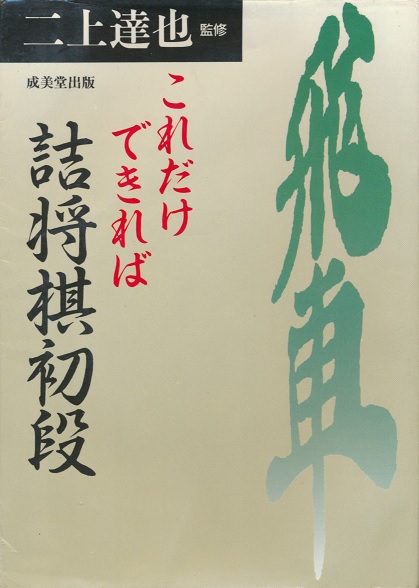 二上達也 監修
成美堂出版
飛車
これだけ
できれば
詰将棋初段